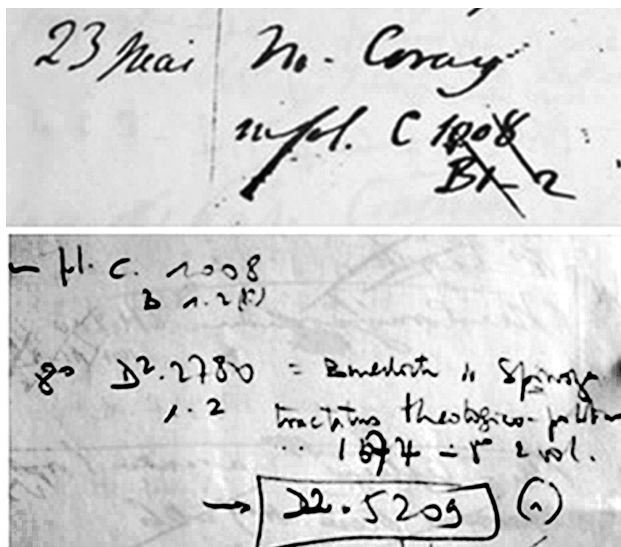 23 Mai M. Coray
in fol. C 1008
B 1-2
fol. C. 1008
B 1.2
8° D². 2780 = Benedicti Spinoza
1.2 tractatus theologico-politicus
1674 2 vol.
→ D2. 5209 (1)